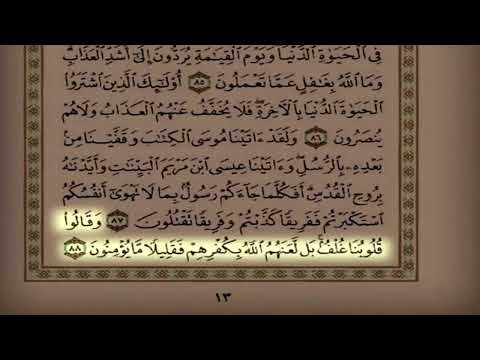 فِى ٱلْحَيَوٰةِ ٱلدُّنْيَا وَيَوْمَ ٱلْقِيَٰمَةِ يُرَدُّونَ إِلَىٰٓ أَشَدِّ ٱلْعَذَابِ
وَمَا ٱللَّهُ بِغَٰفِلٍ عَمَّا تَعْمَلُونَ ٨٥ أُو۟لَٰٓئِكَ ٱلَّذِينَ ٱشْتَرَوُا۟
ٱلْحَيَوٰةَ ٱلدُّنْيَا بِٱلْءَاخِرَةِ فَلَا يُخَفَّفُ عَنْهُمُ ٱلْعَذَابُ وَلَا هُمْ
يُنصَرُونَ ٨٦ وَلَقَدْ ءَاتَيْنَا مُوسَى ٱلْكِتَٰبَ وَقَفَّيْنَا مِنۢ
بَعْدِهِۦ بِٱلرُّسُلِ وَءَاتَيْنَا عِيسَى ٱبْنَ مَرْيَمَ ٱلْبَيِّنَٰتِ وَأَيَّدْنَٰهُ
بِرُوحِ ٱلْقُدُسِ أَفَكُلَّمَا جَآءَكُمْ رَسُولٌۢ بِمَا لَا تَهْوَىٰٓ أَنفُسُكُمُ
ٱسْتَكْبَرْتُمْ فَفَرِيقًا كَذَّبْتُمْ وَفَرِيقًا تَقْتُلُونَ ٨٧ وَقَالُوا۟
قُلُوبُنَا غُلْفٌۢ بَل لَّعَنَهُمُ ٱللَّهُ بِكُفْرِهِمْ فَقَلِيلًا مَّا يُؤْمِنُونَ ٨٨
١٣